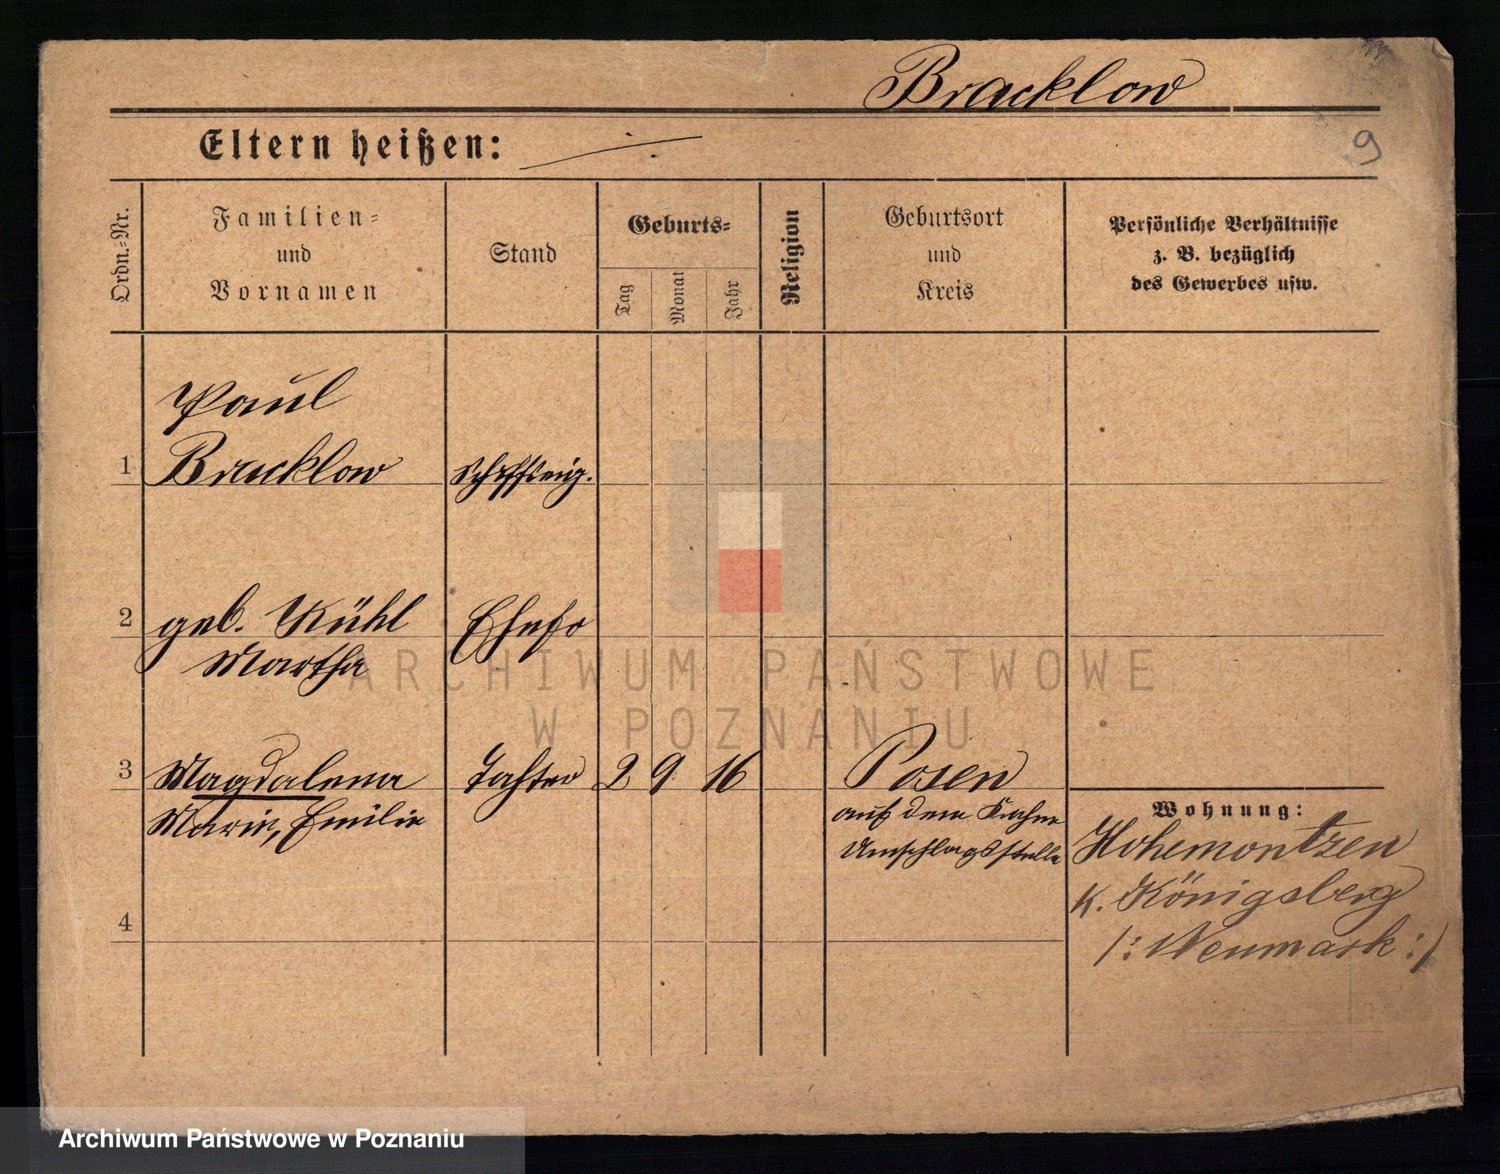 Bracklow
9
Eltern heißen: ⁒
Ordn.-Nr.
Familien-
und
Vornamen
Stand
Geburts-
Tag
Monat
Jahr
Religion
Geburtsort
und
Kreis
Persönliche Verhältnisse
z. B. bezüglich
des Gewerbes usw.
Paul
1 Bracklow Schiffseig.
2 geb. Kühl Ehefr
Martha
3 Magdalena Tochter 2 9. 16 Posen
Marie, Emilie auf dem Kahne
Umschlagsstelle
Wohnung:
Hohenwutzen
K. Königsberg
/: Neumark :/
4
ARCHIWUM PAŃSTWOWE
W POZNANIU
Archiwum Państwowe w Poznaniu